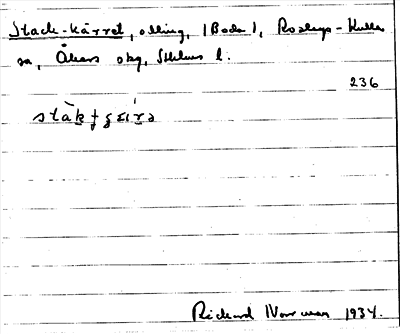 Stack-kärret, odling, (Boda), Roslags-Kulla
sn, Åkers skg, Sthlms l.
236
Richard Norrman 1934.